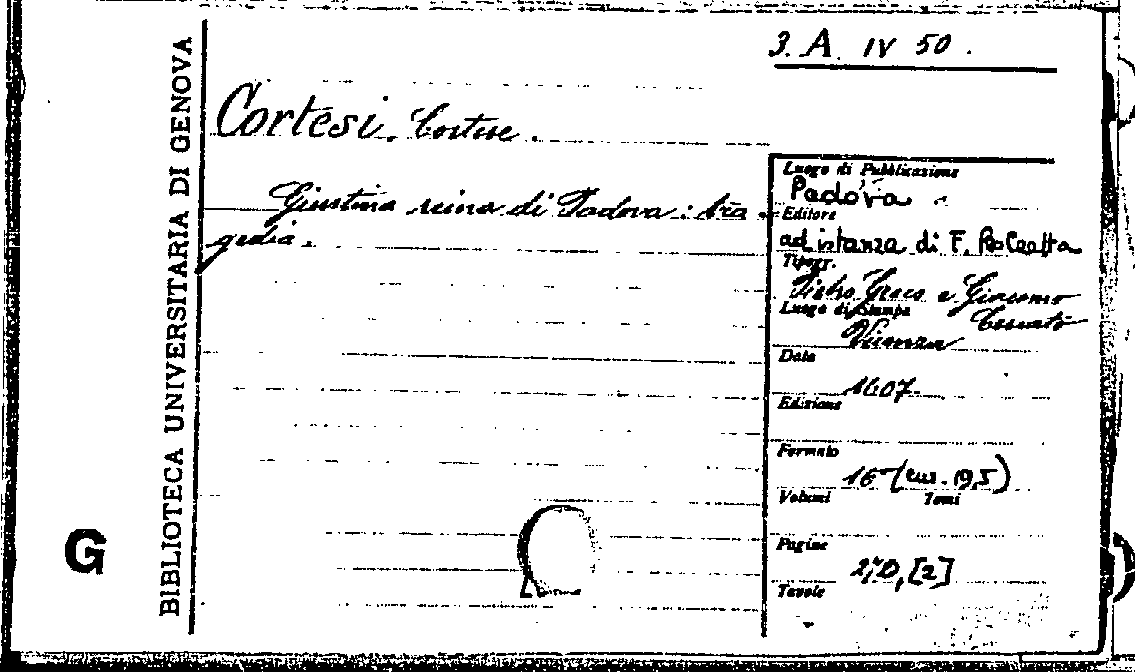 3. A IV 50.
BIBLIOTECA UNIVERSITARIA DI GENOVA
G
Cortesi, Cortese.
Giustina reina di Padova: tra-
gedia.
Luogo di Pubblicazione
Padova
Editore
ad istanza di F. Bolzetta
Tipogr.
Pietro Greco e Giacomo
Luogo di Stampa
Vicenza
Data
1607
Edizione
Formato
16° (cm. 19,5)
Volumi Tomi
Pagine
[2]
Tavole